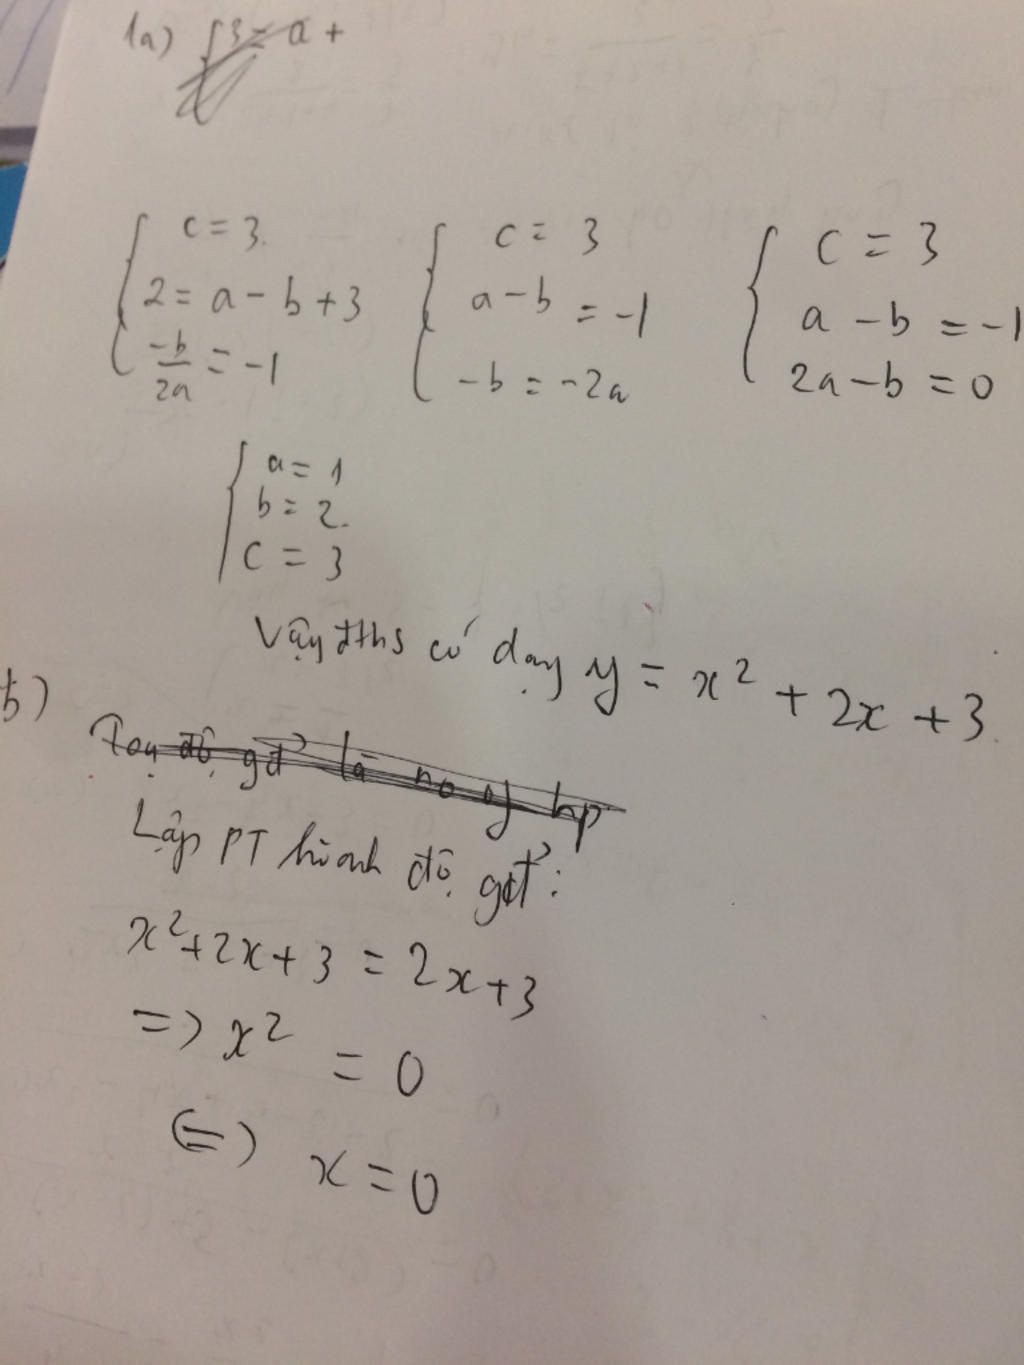 1a) { 3 = a +
{ c = 3.
2 = a - b + 3
-b/2a = -1
{ c = 3
a - b = -1
-b = -2a
{ c = 3
a - b = -1
2a - b = 0
{ a = 1
b = 2.
c = 3
Vậy đths có dạng y = x² + 2x + 3.
b)
Toạ độ gđ là no of hp
Lập PT hoành độ gđ:
x² + 2x + 3 = 2x + 3
=> x² = 0
<=> x = 0